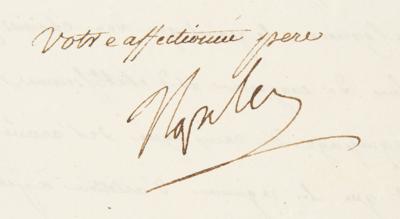 Votre affectionné pere
Napoleon